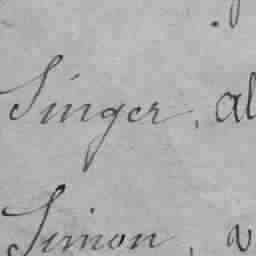 Singer, al
Simon, v